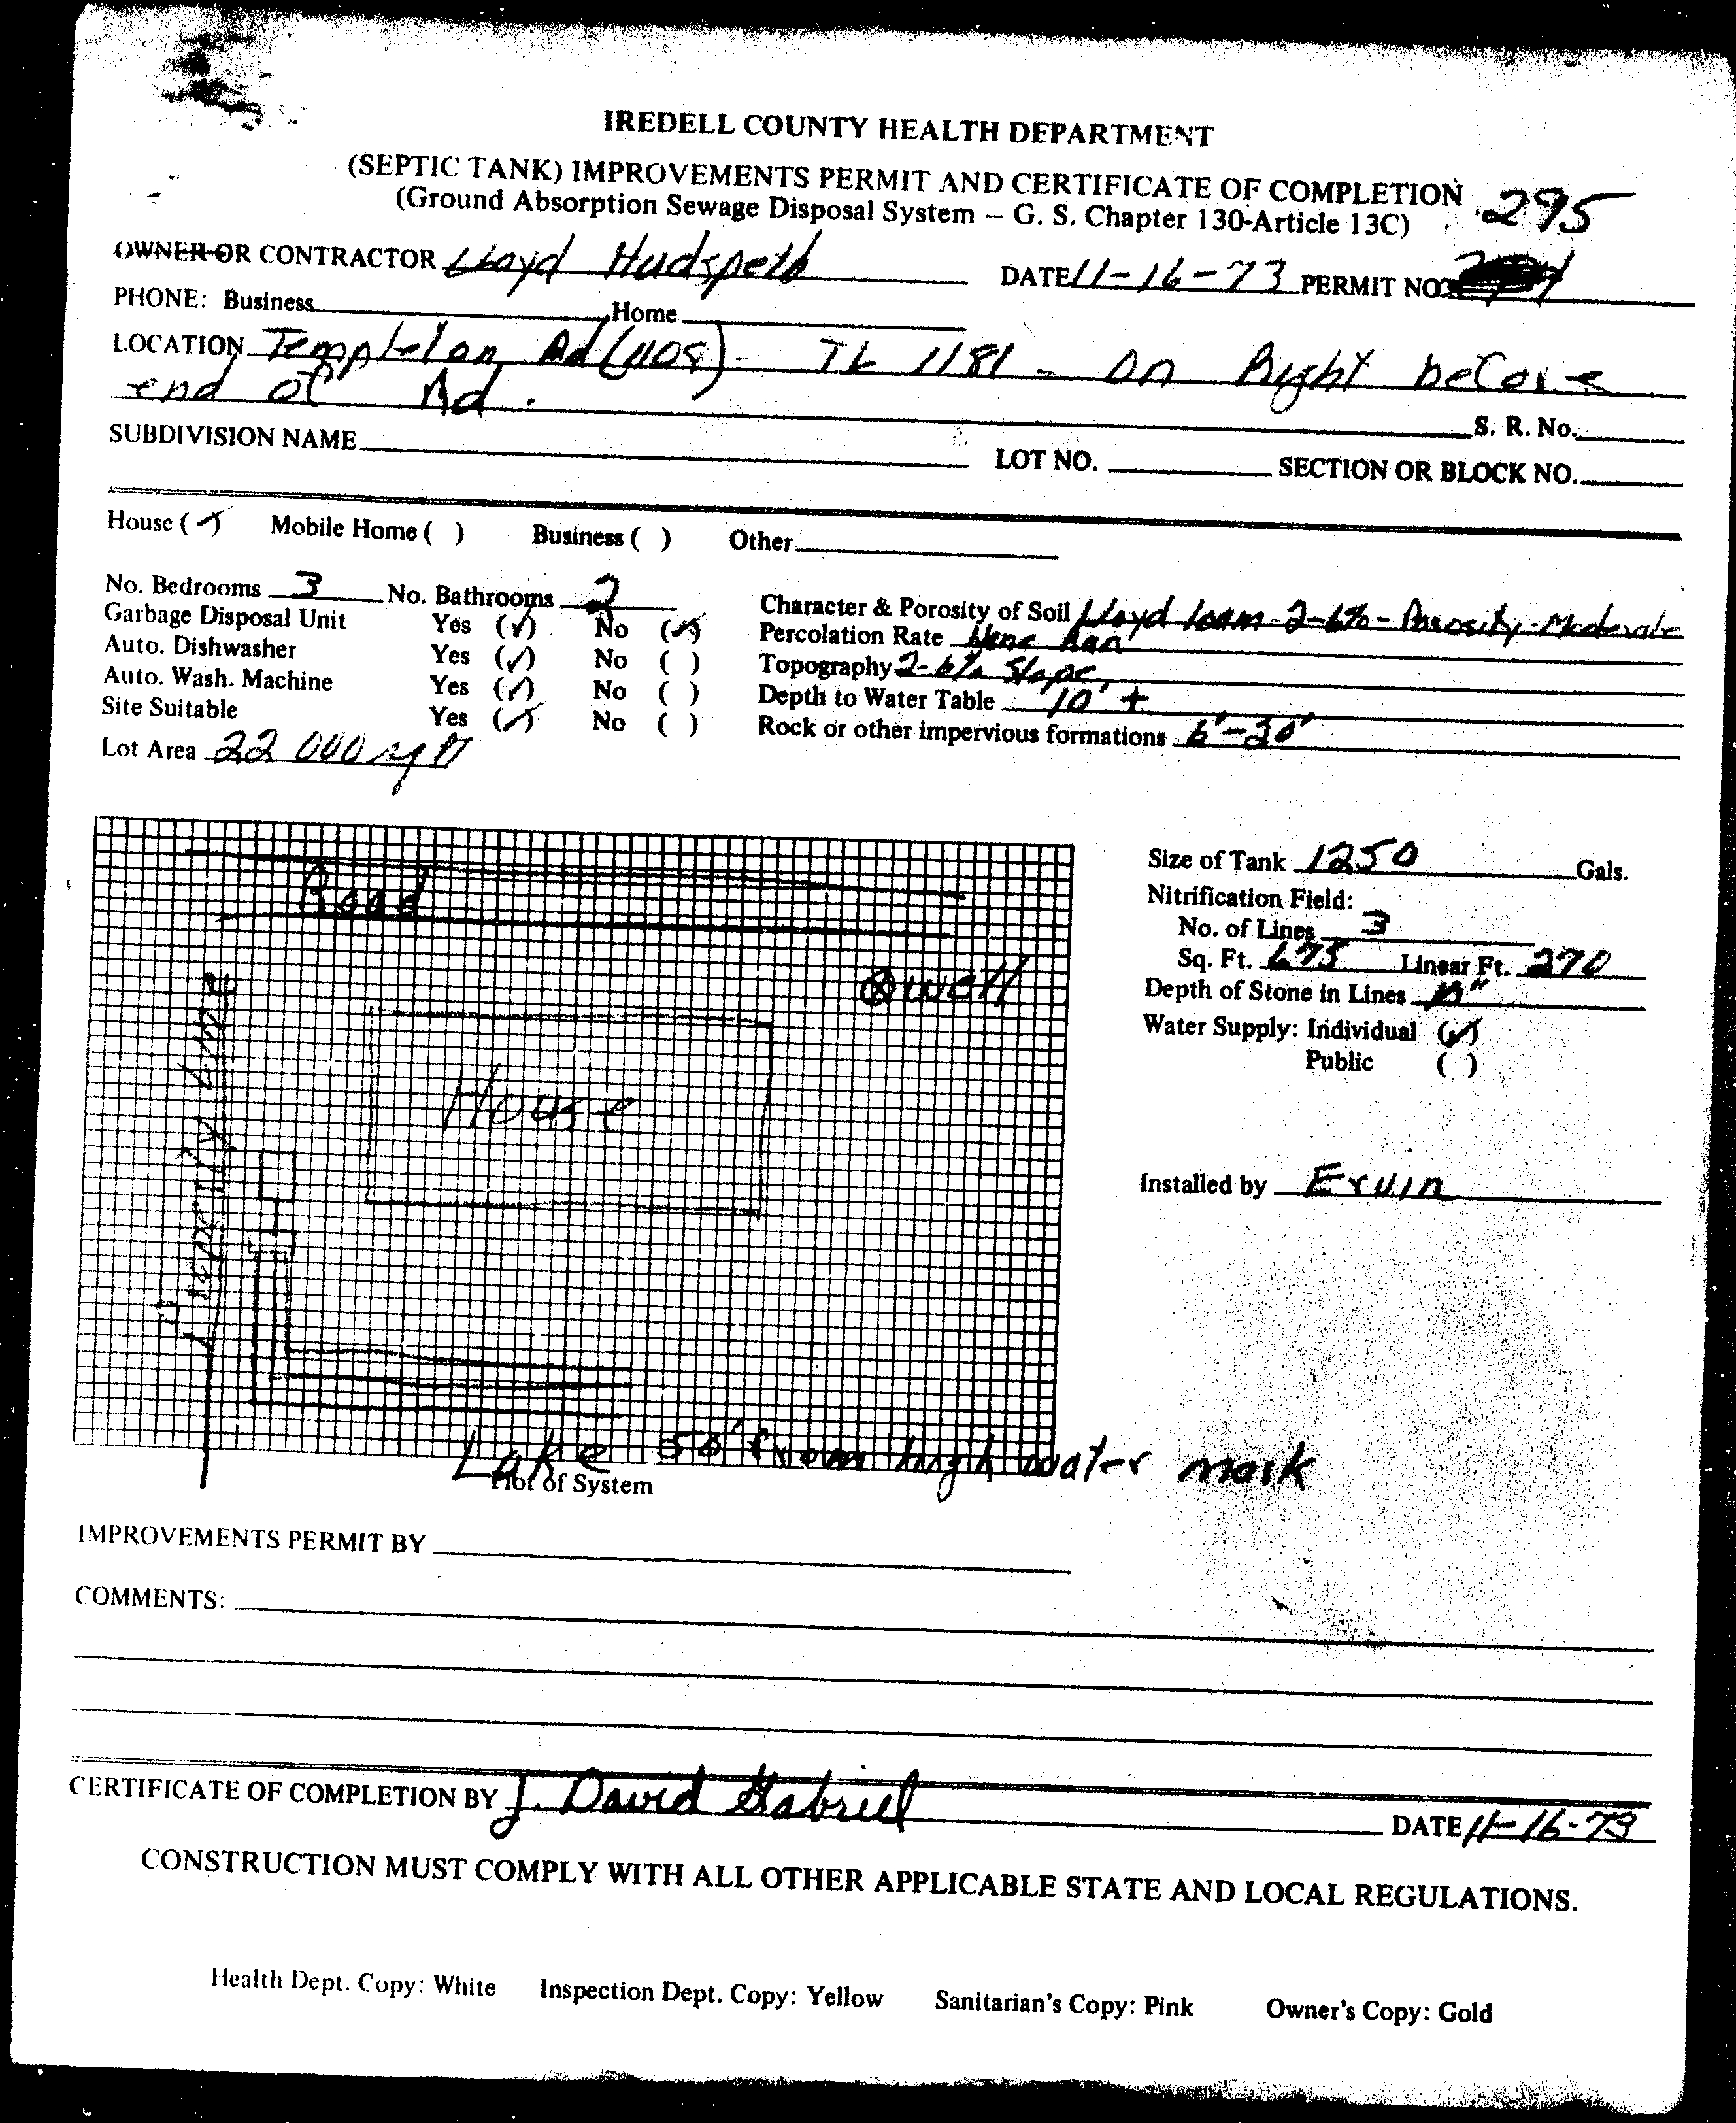 IREDELL COUNTY HEALTH DEPARTMENT
(SEPTIC TANK) IMPROVEMENTS PERMIT AND CERTIFICATE OF COMPLETION
(Ground Absorption Sewage Disposal System – G. S. Chapter 130-Article 13C) 295
OWNER OR CONTRACTOR Lloyd Hudspeth DATE 11-16-73 PERMIT NO.
PHONE: Business Home
LOCATION Templeton Rd (1108) - TL 1181 - on Right before
end of Rd. S. R. No.
SUBDIVISION NAME LOT NO. SECTION OR BLOCK NO.
House (✓) Mobile Home ( ) Business ( ) Other
No. Bedrooms 3 No. Bathrooms 2
Garbage Disposal Unit Yes (✓) No (✓)
Auto. Dishwasher Yes (✓) No ( )
Auto. Wash. Machine Yes (✓) No ( )
Site Suitable Yes (✓) No ( )
Lot Area 22 000 sq ft
Character & Porosity of Soil Lloyd loam 2-6% - Porosity - Moderate
Percolation Rate None Ran
Topography 2-6% Slope
Depth to Water Table 10' +
Rock or other impervious formations 6'-30'
Road
well
House
Property Line
Lake 50' from high water mark
Plot of System
Size of Tank 1250 Gals.
Nitrification Field:
No. of Lines 3
Sq. Ft. 675 Linear Ft. 270
Depth of Stone in Lines
Water Supply: Individual (✓)
Public ( )
Installed by Ervin
IMPROVEMENTS PERMIT BY
COMMENTS:
CERTIFICATE OF COMPLETION BY J. David Gabriel DATE 11-16-73
CONSTRUCTION MUST COMPLY WITH ALL OTHER APPLICABLE STATE AND LOCAL REGULATIONS.
Health Dept. Copy: White Inspection Dept. Copy: Yellow Sanitarian's Copy: Pink Owner's Copy: Gold